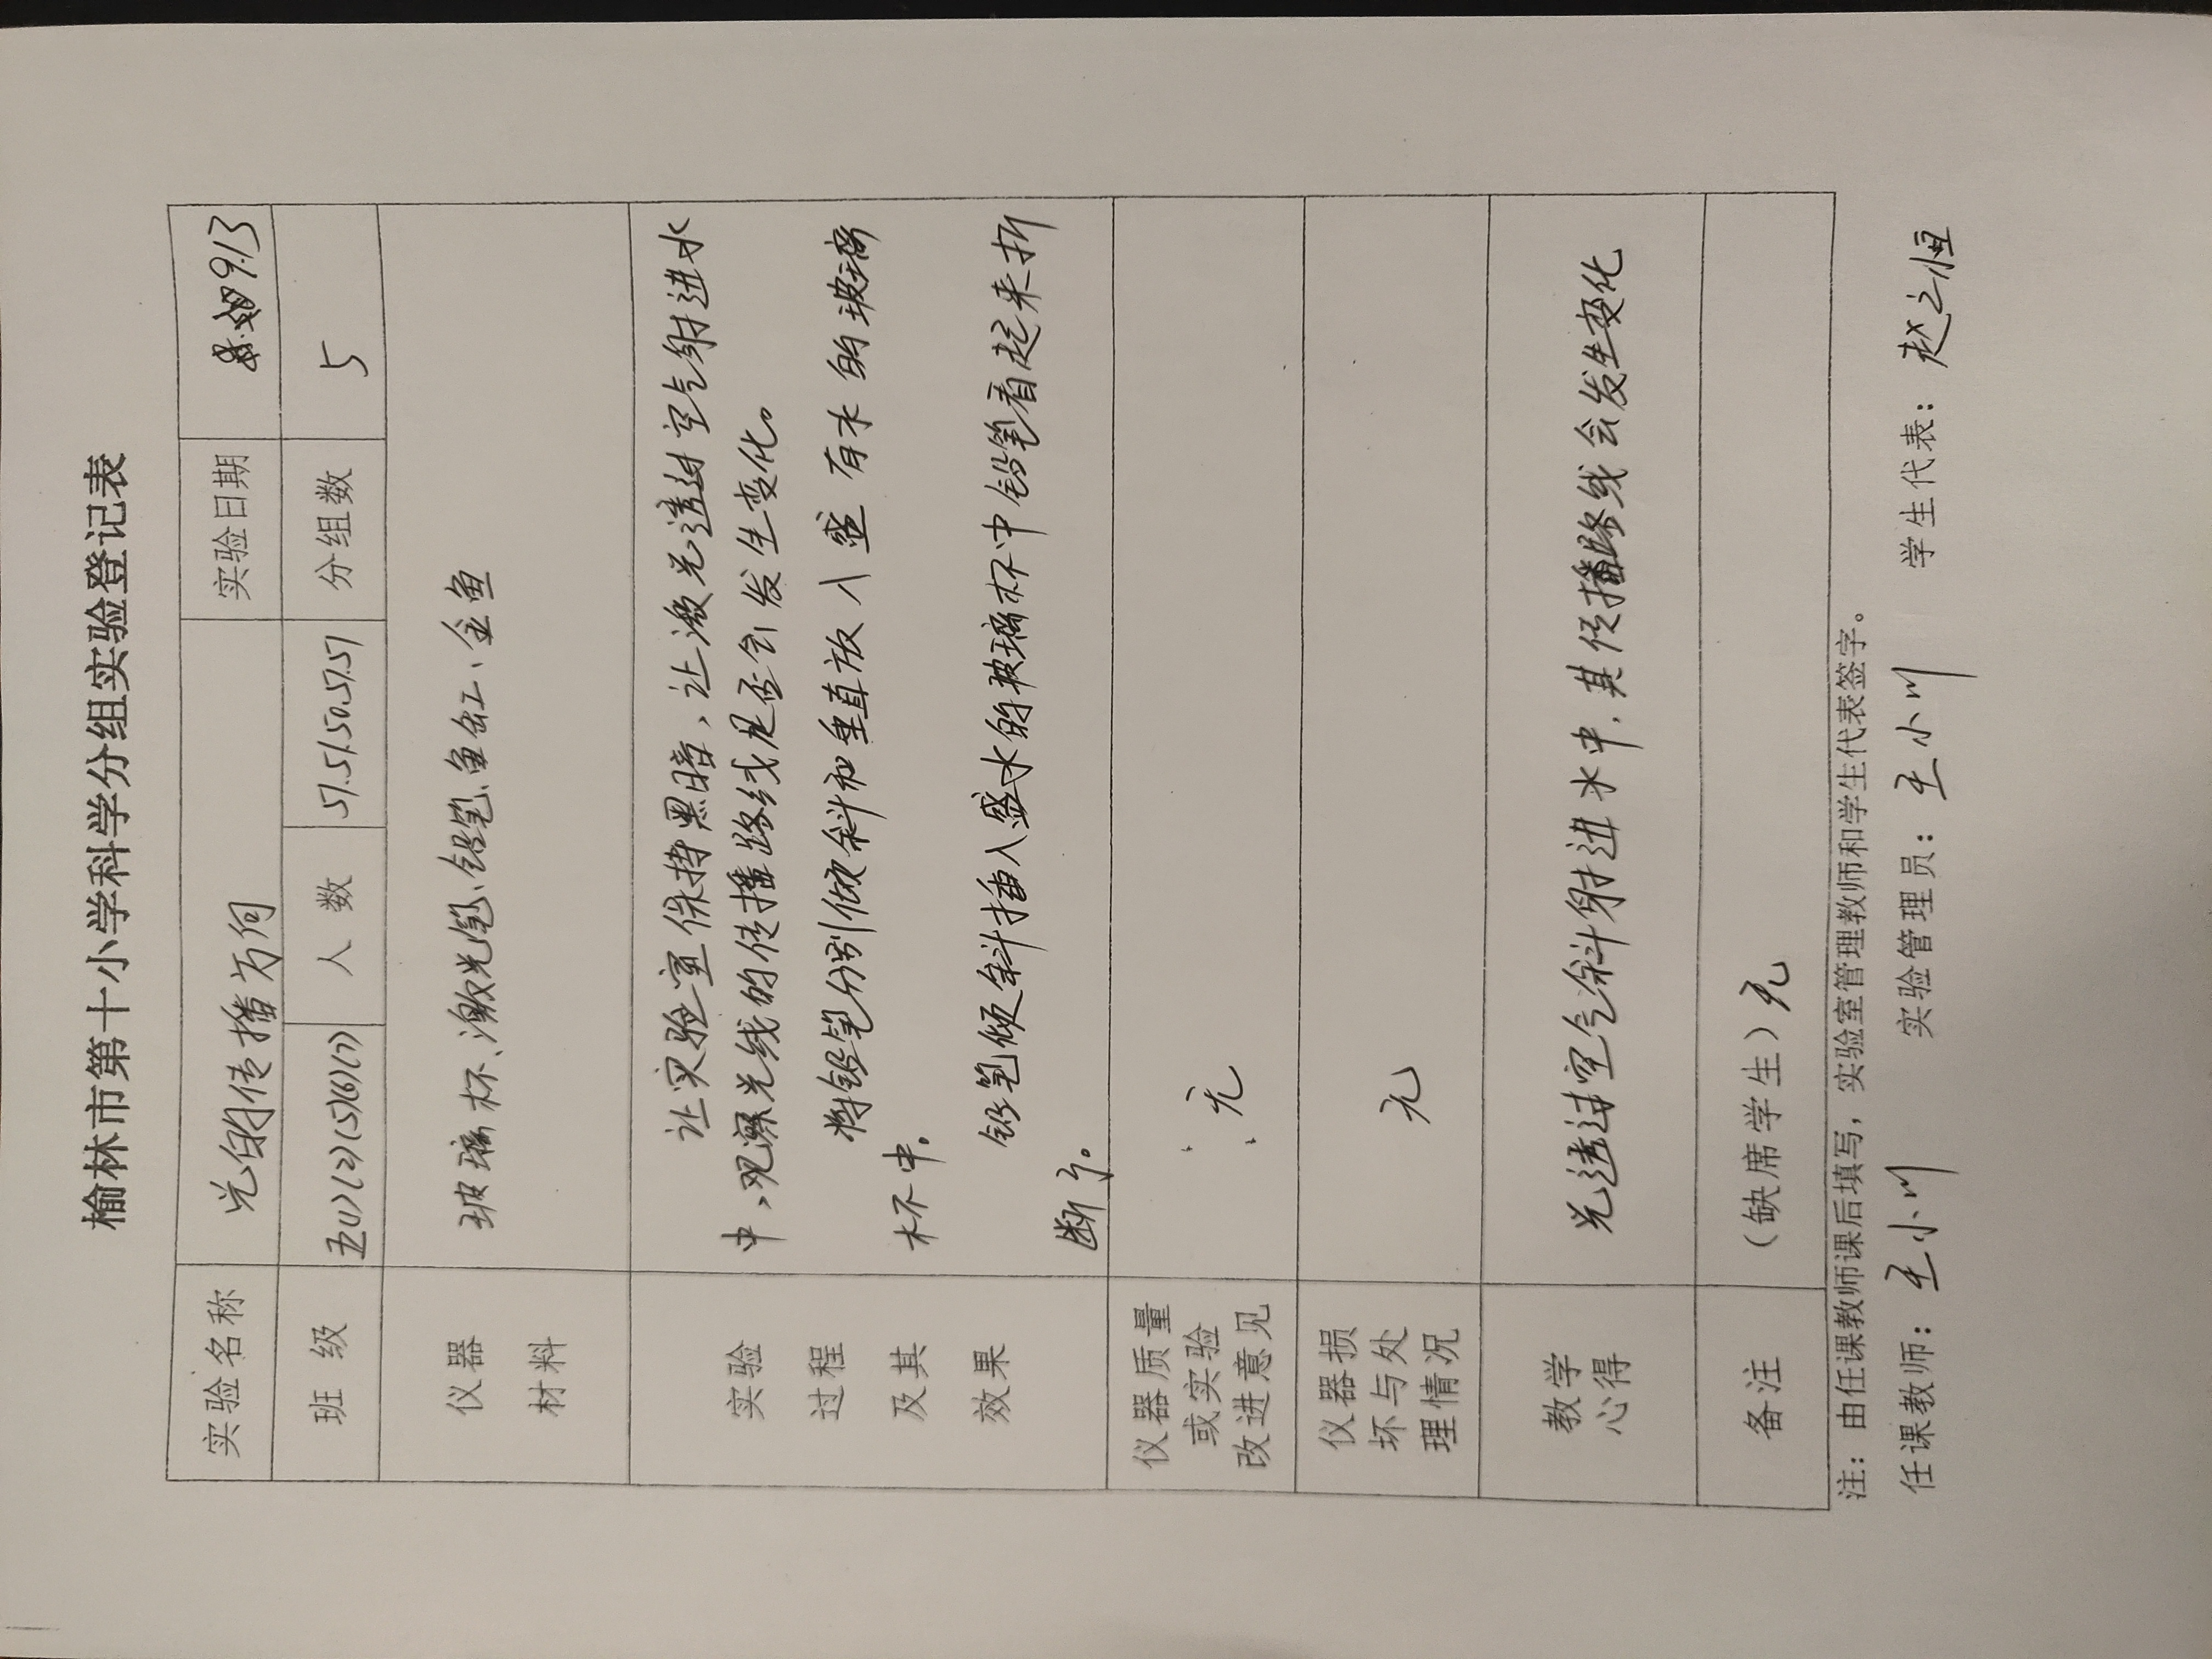 榆林市第十小学科学分组实验登记表
实验名称 光的传播方向 实验日期 9.13
班级 五(1)(2)(5)(6)(7) 人数 51.51.50.51.51 分组数 5
仪器材料 玻璃杯、激光笔、铅笔、鱼缸、金鱼
实验过程及其效果
让实验室保持黑暗，让激光透过空气射进水
中，观察光线的传播路线是否会发生变化。
将铅笔分别倾斜和垂直放入盛有水的玻璃
杯中。
铅笔倾斜插入盛水的玻璃杯中铅笔看起来折
断了。
仪器质量或实验改进意见 无
仪器损坏与处理情况 无
教学心得 光透过空气斜射进水中，其传播路线会发生变化
备注 （缺席学生）无
注：由任课教师课后填写，实验室管理教师和学生代表签字。
任课教师：王小川 实验管理员：王小川 学生代表：赵之恒